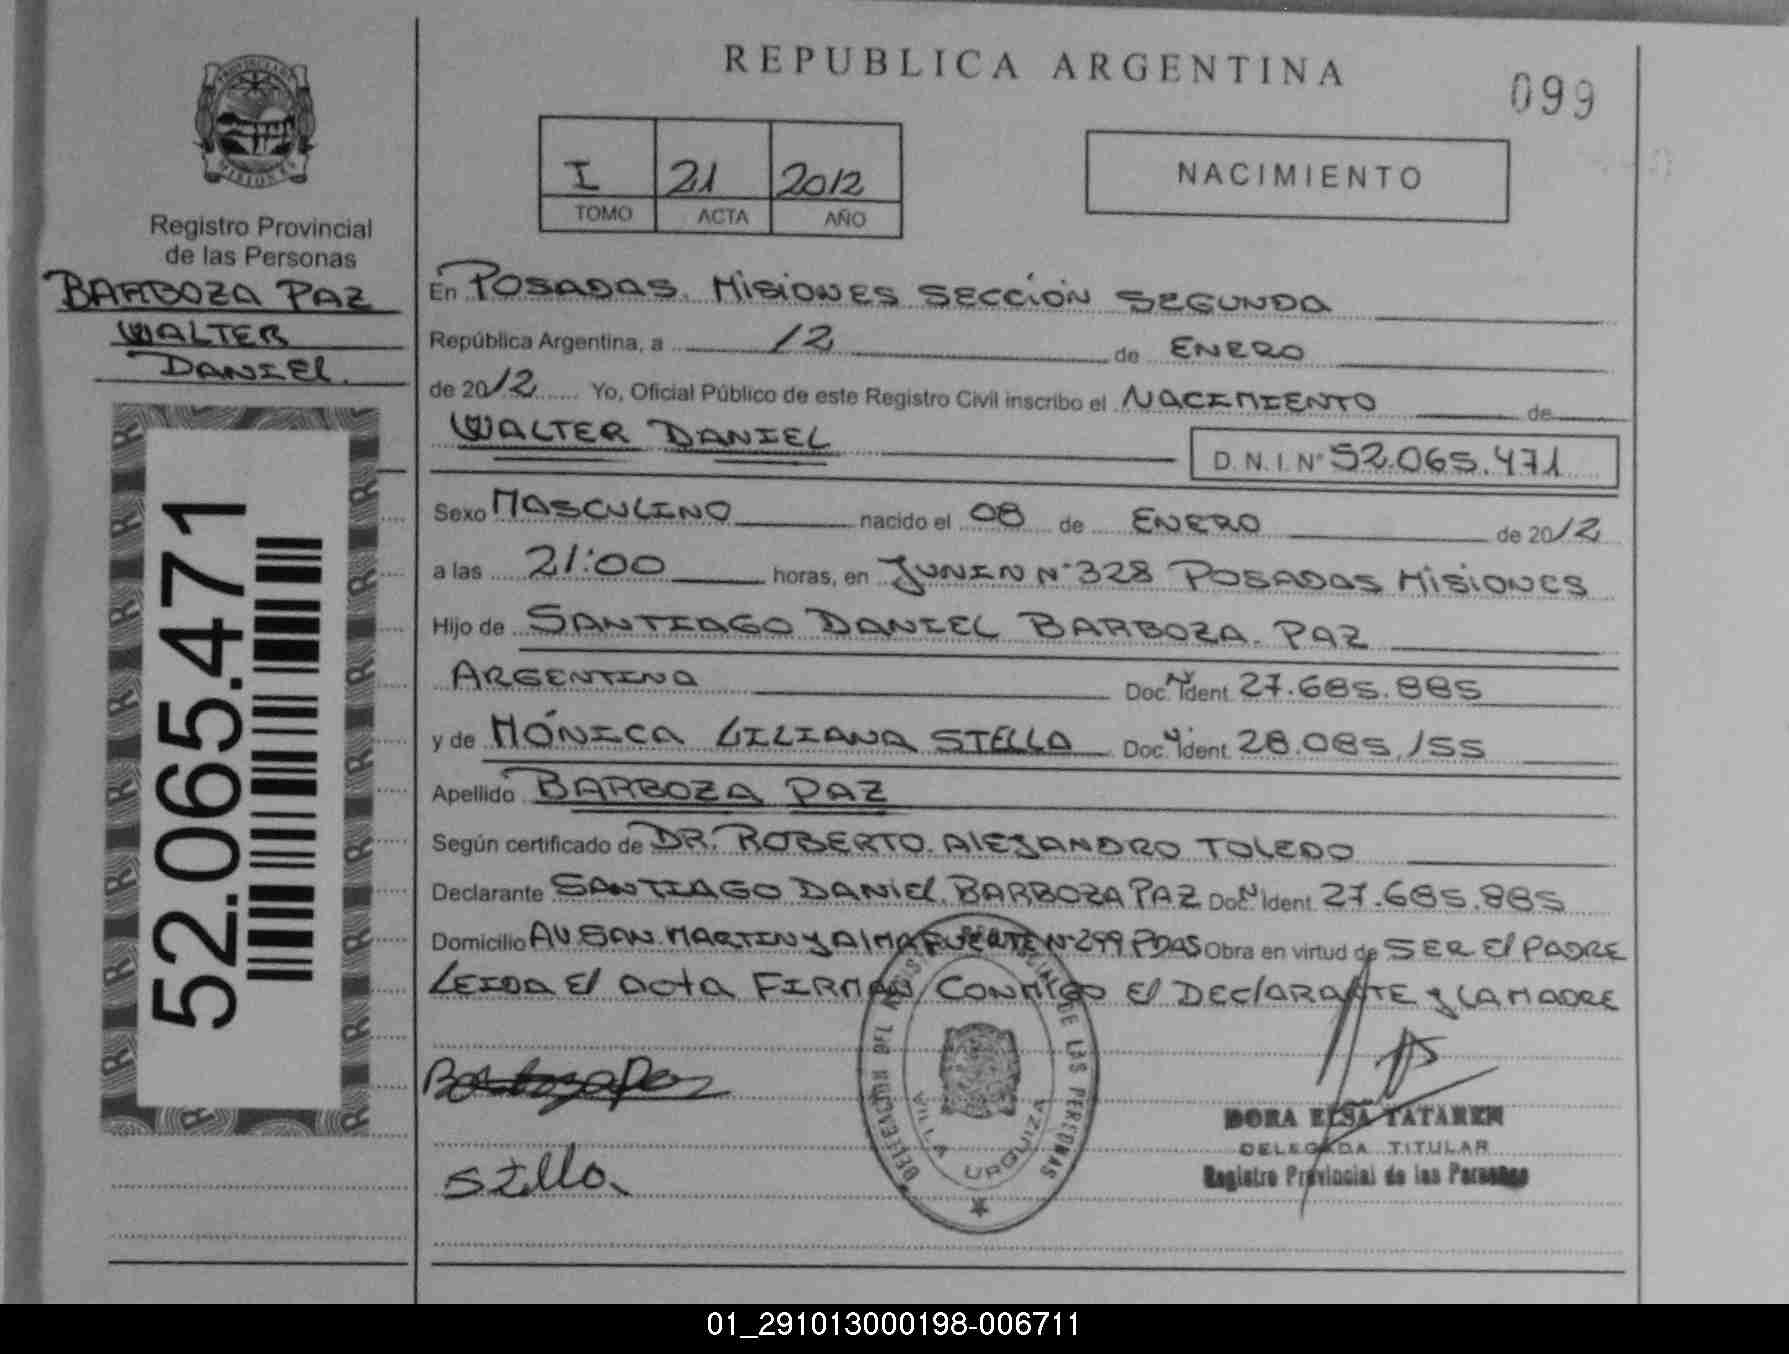 REPUBLICA ARGENTINA
099
I 21 2012
TOMO ACTA AÑO
NACIMIENTO
Registro Provincial
de las Personas
BARBOZA PAZ
WALTER
DANIEL.
52.065.471
En POSADAS. MISIONES SECCIÓN SEGUNDA
República Argentina, a 12 de ENERO
de 2012 Yo, Oficial Público de este Registro Civil inscribo el NACIMIENTO de
WALTER DANIEL D. N. I. N° 52.065.471
Sexo MASCULINO nacido el 08 de ENERO de 2012
a las 21:00 horas, en JUNIN N° 328 POSADAS MISIONES
Hijo de SANTIAGO DANIEL BARBOZA. PAZ
ARGENTINO Doc. N° Ident. 27.685.885
y de MÓNICA LILIANA STELLA Doc. Ident. 28.085.155
Apellido BARBOZA PAZ
Según certificado de DR. ROBERTO. ALEJANDRO TOLEDO
Declarante SANTIAGO DANIEL BARBOZA PAZ Doc. N° Ident. 27.685.885
Domicilio AV. SAN. MARTIN y ALMAFUERTE N° 299 PDAS Obra en virtud de SER El PADRE
LEIDA El ACTA FIRMAN CONMIGO El DEClARANTE y LA MADRE
Barboza Paz
Stella
DELEGACION DEL REGISTRO PROVINCIAL DE LAS PERSONAS
VILLA URQUIZA
DORA ELSA TATAREN
DELEGADA TITULAR
Registro Provincial de las Personas
01_291013000198-006711